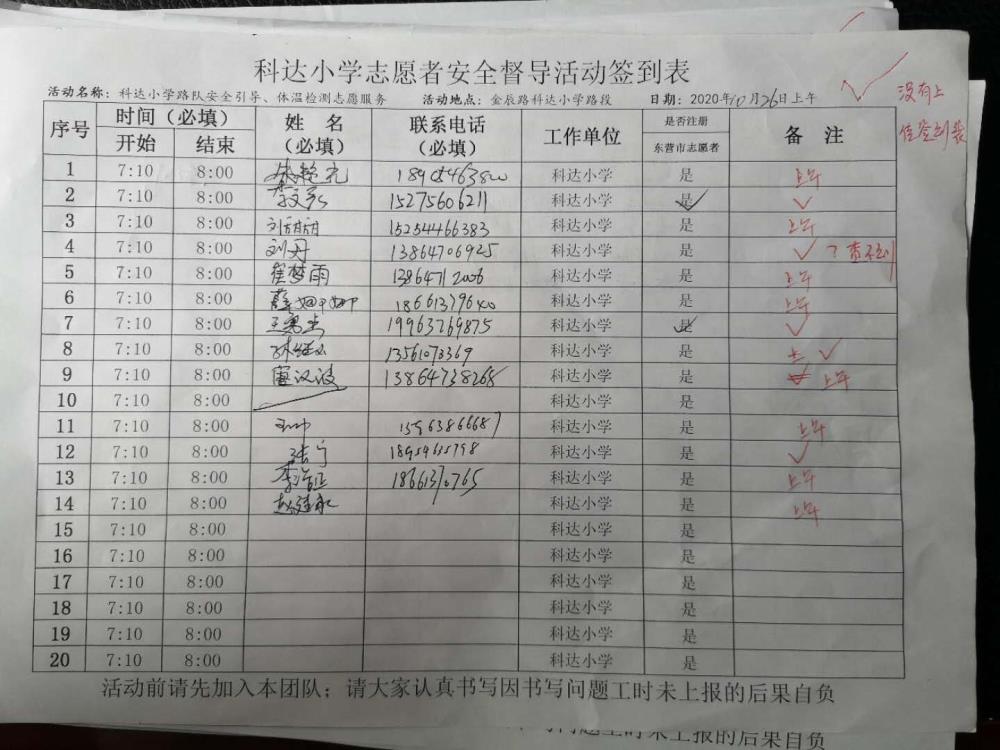 科达小学志愿者安全督导活动签到表
活动名称：科达小学路队安全引导、体温检测志愿服务 活动地点：金辰路科达小学路段 日期：2020年10月26日上午
没有上
传签到表
序号 时间（必填） 姓 名（必填） 联系电话（必填） 工作单位 是否注册东营市志愿者 备 注
开始 结束
1 7:10 8:00 科达小学 是 上午
2 7:10 8:00 15275606211 科达小学 是 ✓
3 7:10 8:00 刘甜甜 15254466383 科达小学 是 上午
4 7:10 8:00 刘丹 13864706925 科达小学 是 ✓ ？查不到
5 7:10 8:00 崔梦雨 13864712006 科达小学 是 上午
6 7:10 8:00 薛姗姗 科达小学 是 上午
7 7:10 8:00 19963269875 科达小学 是 ✓
8 7:10 8:00 13561073369 科达小学 是 ✓
9 7:10 8:00 13864738268 科达小学 是 上午
10 7:10 8:00 科达小学 是
11 7:10 8:00 科达小学 是 上午
12 7:10 8:00 张宁 科达小学 是 ✓
13 7:10 8:00 科达小学 是 上午
14 7:10 8:00 科达小学 是 上午
15 7:10 8:00 科达小学 是
16 7:10 8:00 科达小学 是
17 7:10 8:00 科达小学 是
18 7:10 8:00 科达小学 是
19 7:10 8:00 科达小学 是
20 7:10 8:00 科达小学 是
活动前请先加入本团队；请大家认真书写因书写问题工时未上报的后果自负
问题工时未上报的后果自负